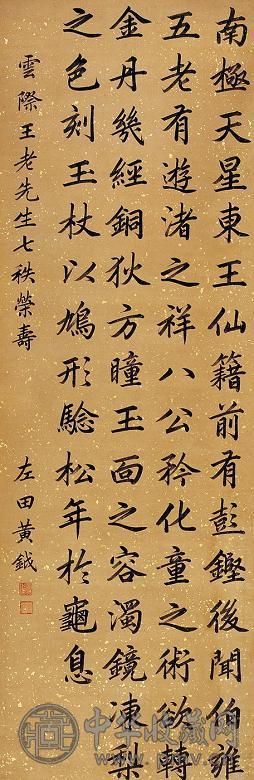 南極天星東王仙籍前有彭鏗後聞伯雍
五老有遊渚之祥八公矜化童之術欲轉
金丹幾經銅狄方瞳玉面之容濁鏡凍梨
之色刻玉杖以鳩形騐松年於龜息
雲際王老先生七秩榮壽
左田黃鉞
中华收藏网